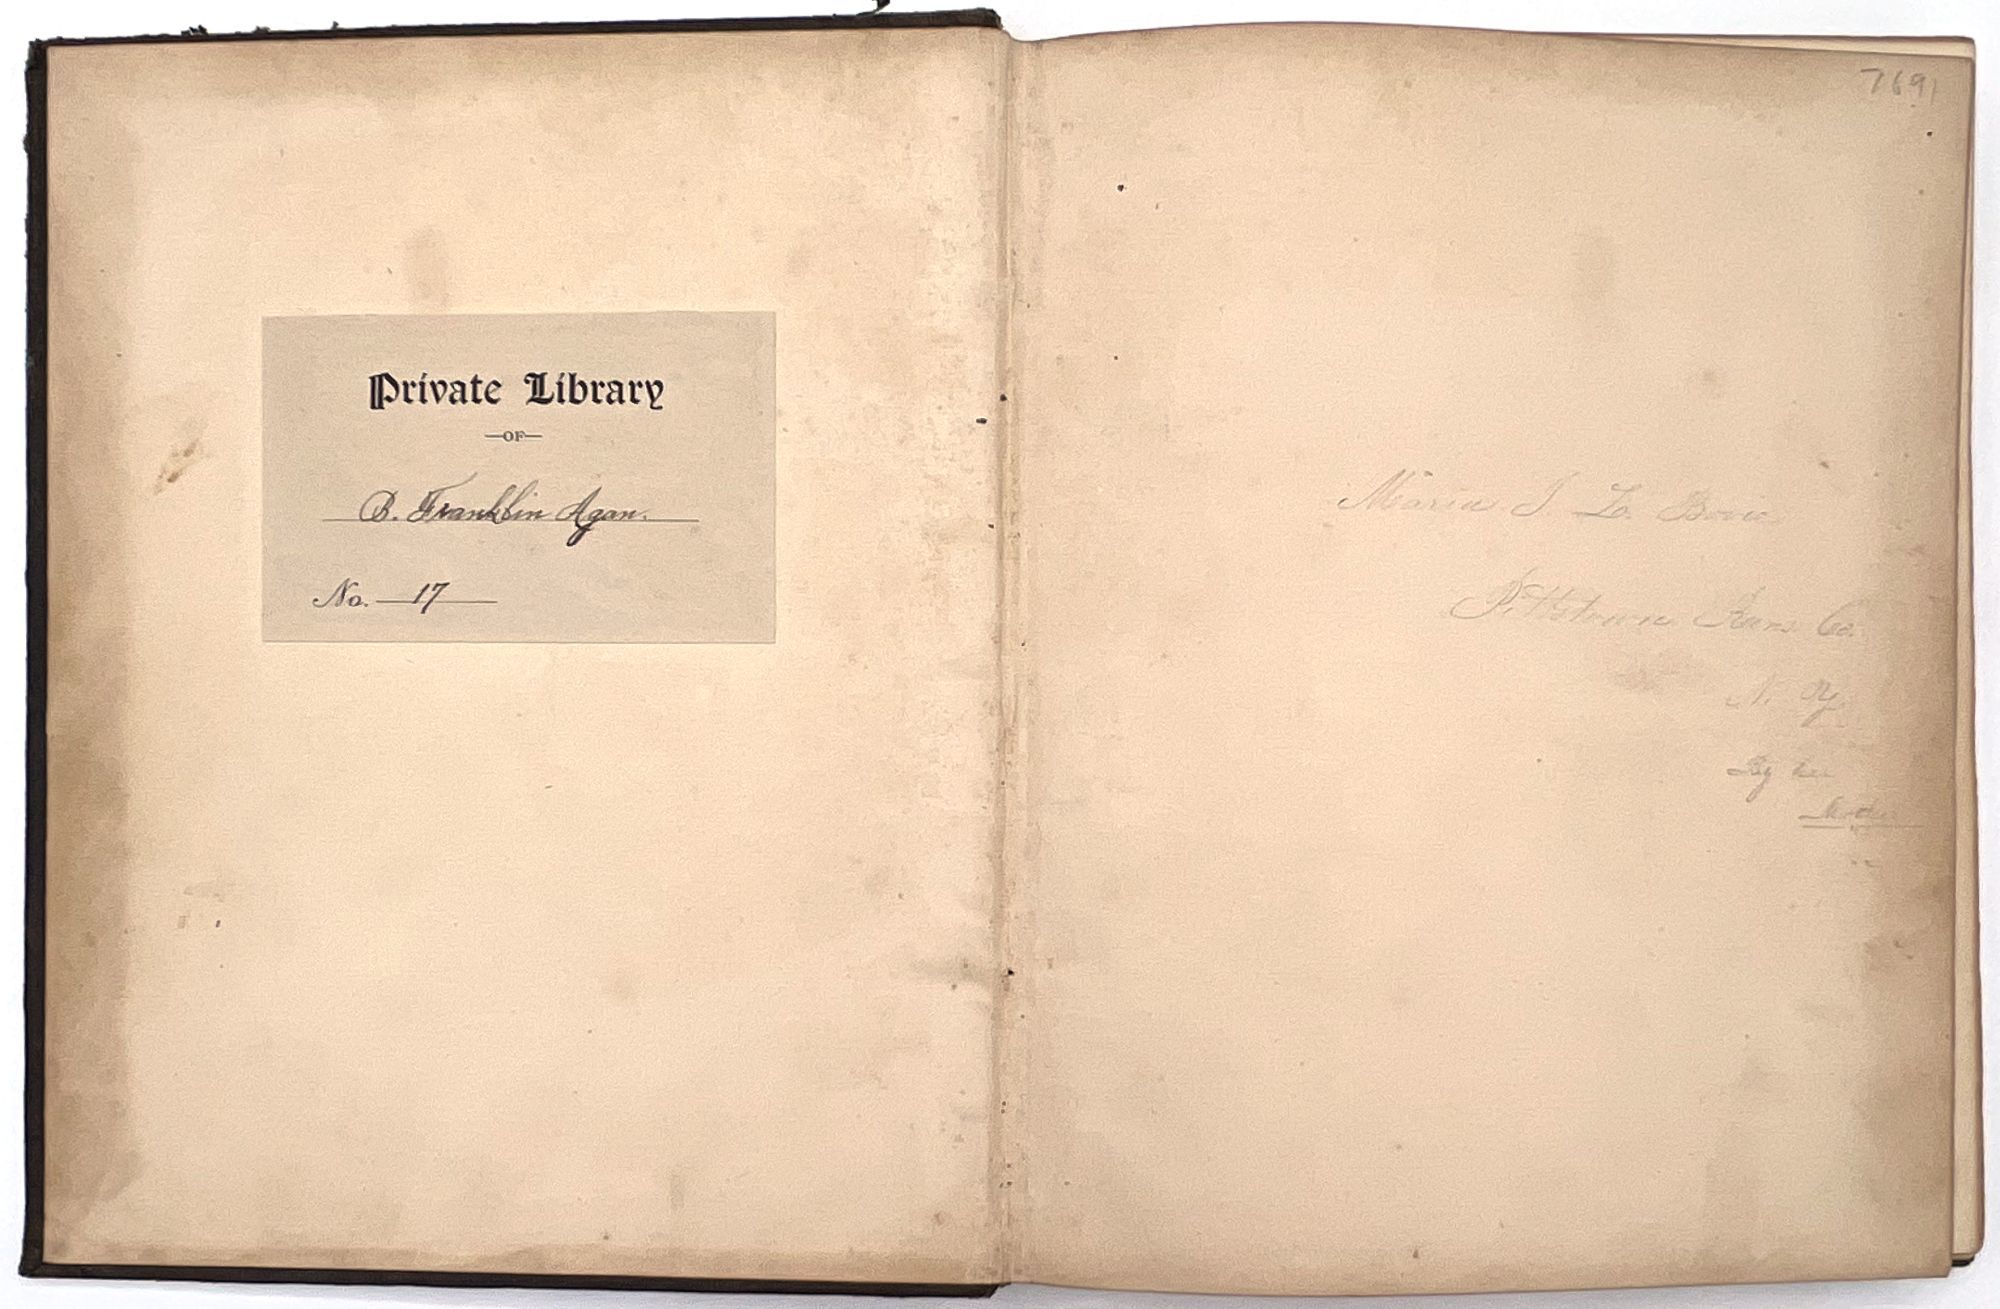 Private Library
—OF—
B. Franklin Agan.
No. 17
7691
Maria J. L. Bovie
Pittstown Rens. Co.
N. Y.
By her
Mother